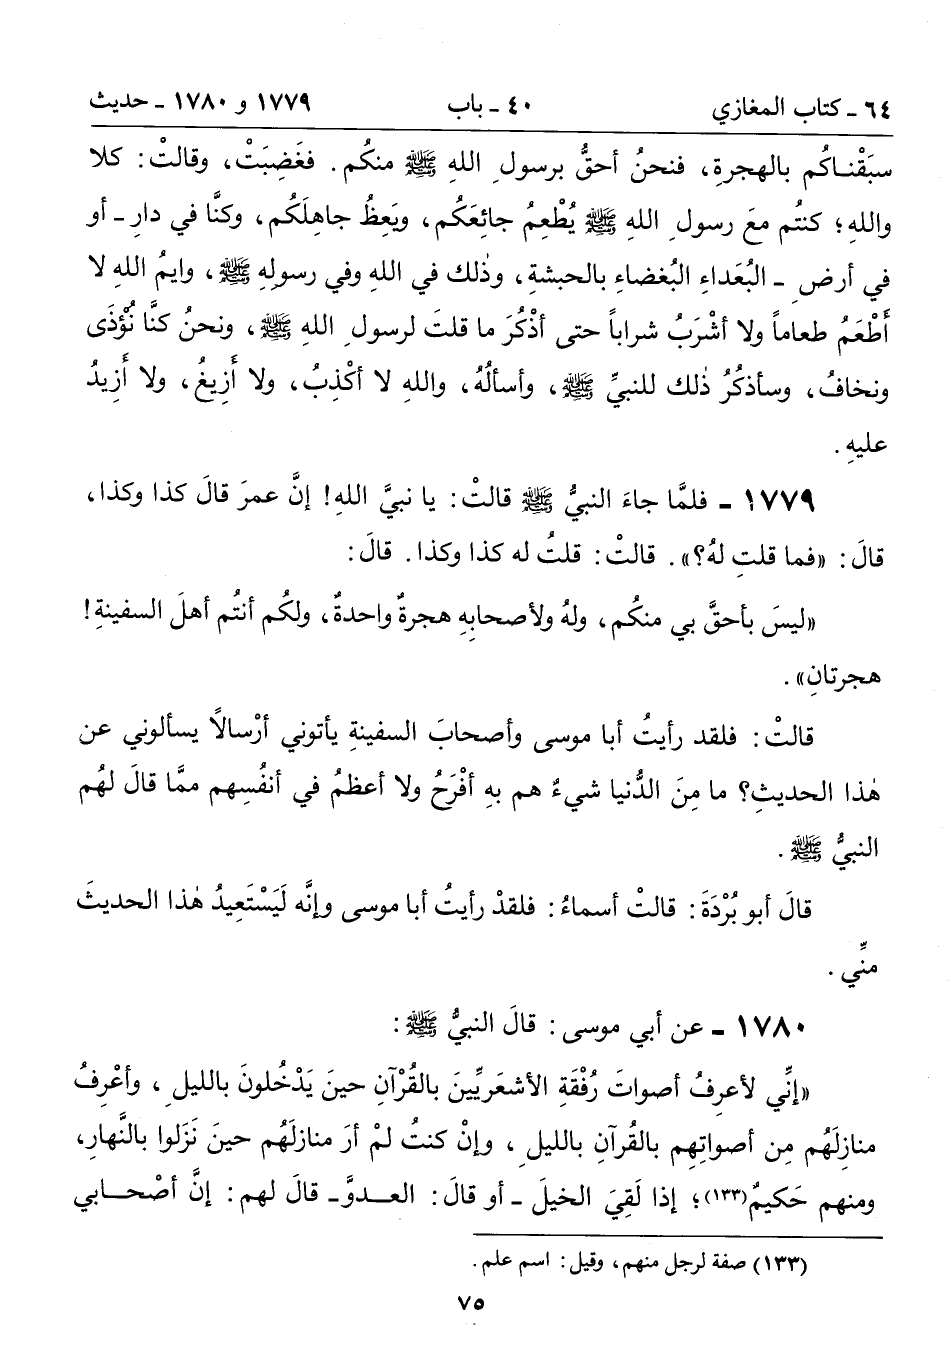 ٦٤ ـ كتاب المغازي ٤٠ ـ باب ١٧٧٩ و ١٧٨٠ ـ حديث
سبَقْناكُم بالهجرةِ، فنحنُ أحقُّ برسولِ اللهِ ﷺ منكُم. فغَضِبَتْ، وقالتْ: كلا
واللهِ؛ كنتُم معَ رسولِ اللهِ ﷺ يُطْعِمُ جائِعَكُم، ويَعِظُ جاهِلَكُم، وكنَّا في دارِ ـ أو
في أرضِ ـ البُعَداءِ البُغضاءِ بالحبشةِ، وذٰلك في اللهِ وفي رسولِهِ ﷺ، وايمُ اللهِ لا
أَطْعَمُ طعاماً ولا أشْرَبُ شراباً حتى أذْكُرَ ما قلتَ لرسولِ اللهِ ﷺ، ونحنُ كنَّا نُؤْذَى
ونخافُ، وسأذكُرُ ذٰلك للنبيِّ ﷺ، وأسألُهُ، واللهِ لا أكْذِبُ، ولا أَزِيغُ، ولا أَزِيدُ
عليهِ.
١٧٧٩ ـ فلمَّا جاءَ النبيُّ ﷺ قالتْ: يا نبيَّ اللهِ! إنَّ عمرَ قالَ كذا وكذا،
قالَ: «فما قلتِ لهُ؟». قالتْ: قلتُ له كذا وكذا. قالَ:
«ليسَ بأحقَّ بي منكُم، ولهُ ولأصحابِهِ هجرةٌ واحدةٌ، ولكُم أنتُم أهلَ السفينةِ!
هجرتانِ».
قالتْ: فلقد رأيتُ أبا موسى وأصحابَ السفينةِ يأتوني أرْسالًا يسألوني عن
هٰذا الحديثِ؟ ما مِنَ الدُّنيا شيءٌ هم بهِ أفْرَحُ ولا أعظمُ في أنفُسِهم ممَّا قالَ لهُم
النبيُّ ﷺ.
قالَ أبو بُرْدَةَ: قالتْ أسماءُ: فلقدْ رأيتُ أبا موسى وإنَّه لَيَسْتَعِيدُ هٰذا الحديثَ
منِّي.
١٧٨٠ ـ عن أبي موسى: قالَ النبيُّ ﷺ:
«إنِّي لأعرِفُ أصواتَ رُفْقَةِ الأشعَريِّينَ بالقُرْآنِ حينَ يَدْخُلونَ بالليلِ، وأعْرِفُ
منازِلَهُم مِن أصواتِهِم بالقُرآنِ بالليلِ، وإنْ كنتُ لمْ أرَ منازلَهُم حينَ نَزَلوا بالنَّهارِ،
ومنهم حَكيمٌ(١٣٣)؛ إذا لَقِيَ الخيلَ ـ أو قالَ: العدوَّ ـ قالَ لهم: إنَّ أصْحابي
(١٣٣) صفة لرجل منهم، وقيل: اسم علم.
٧٥